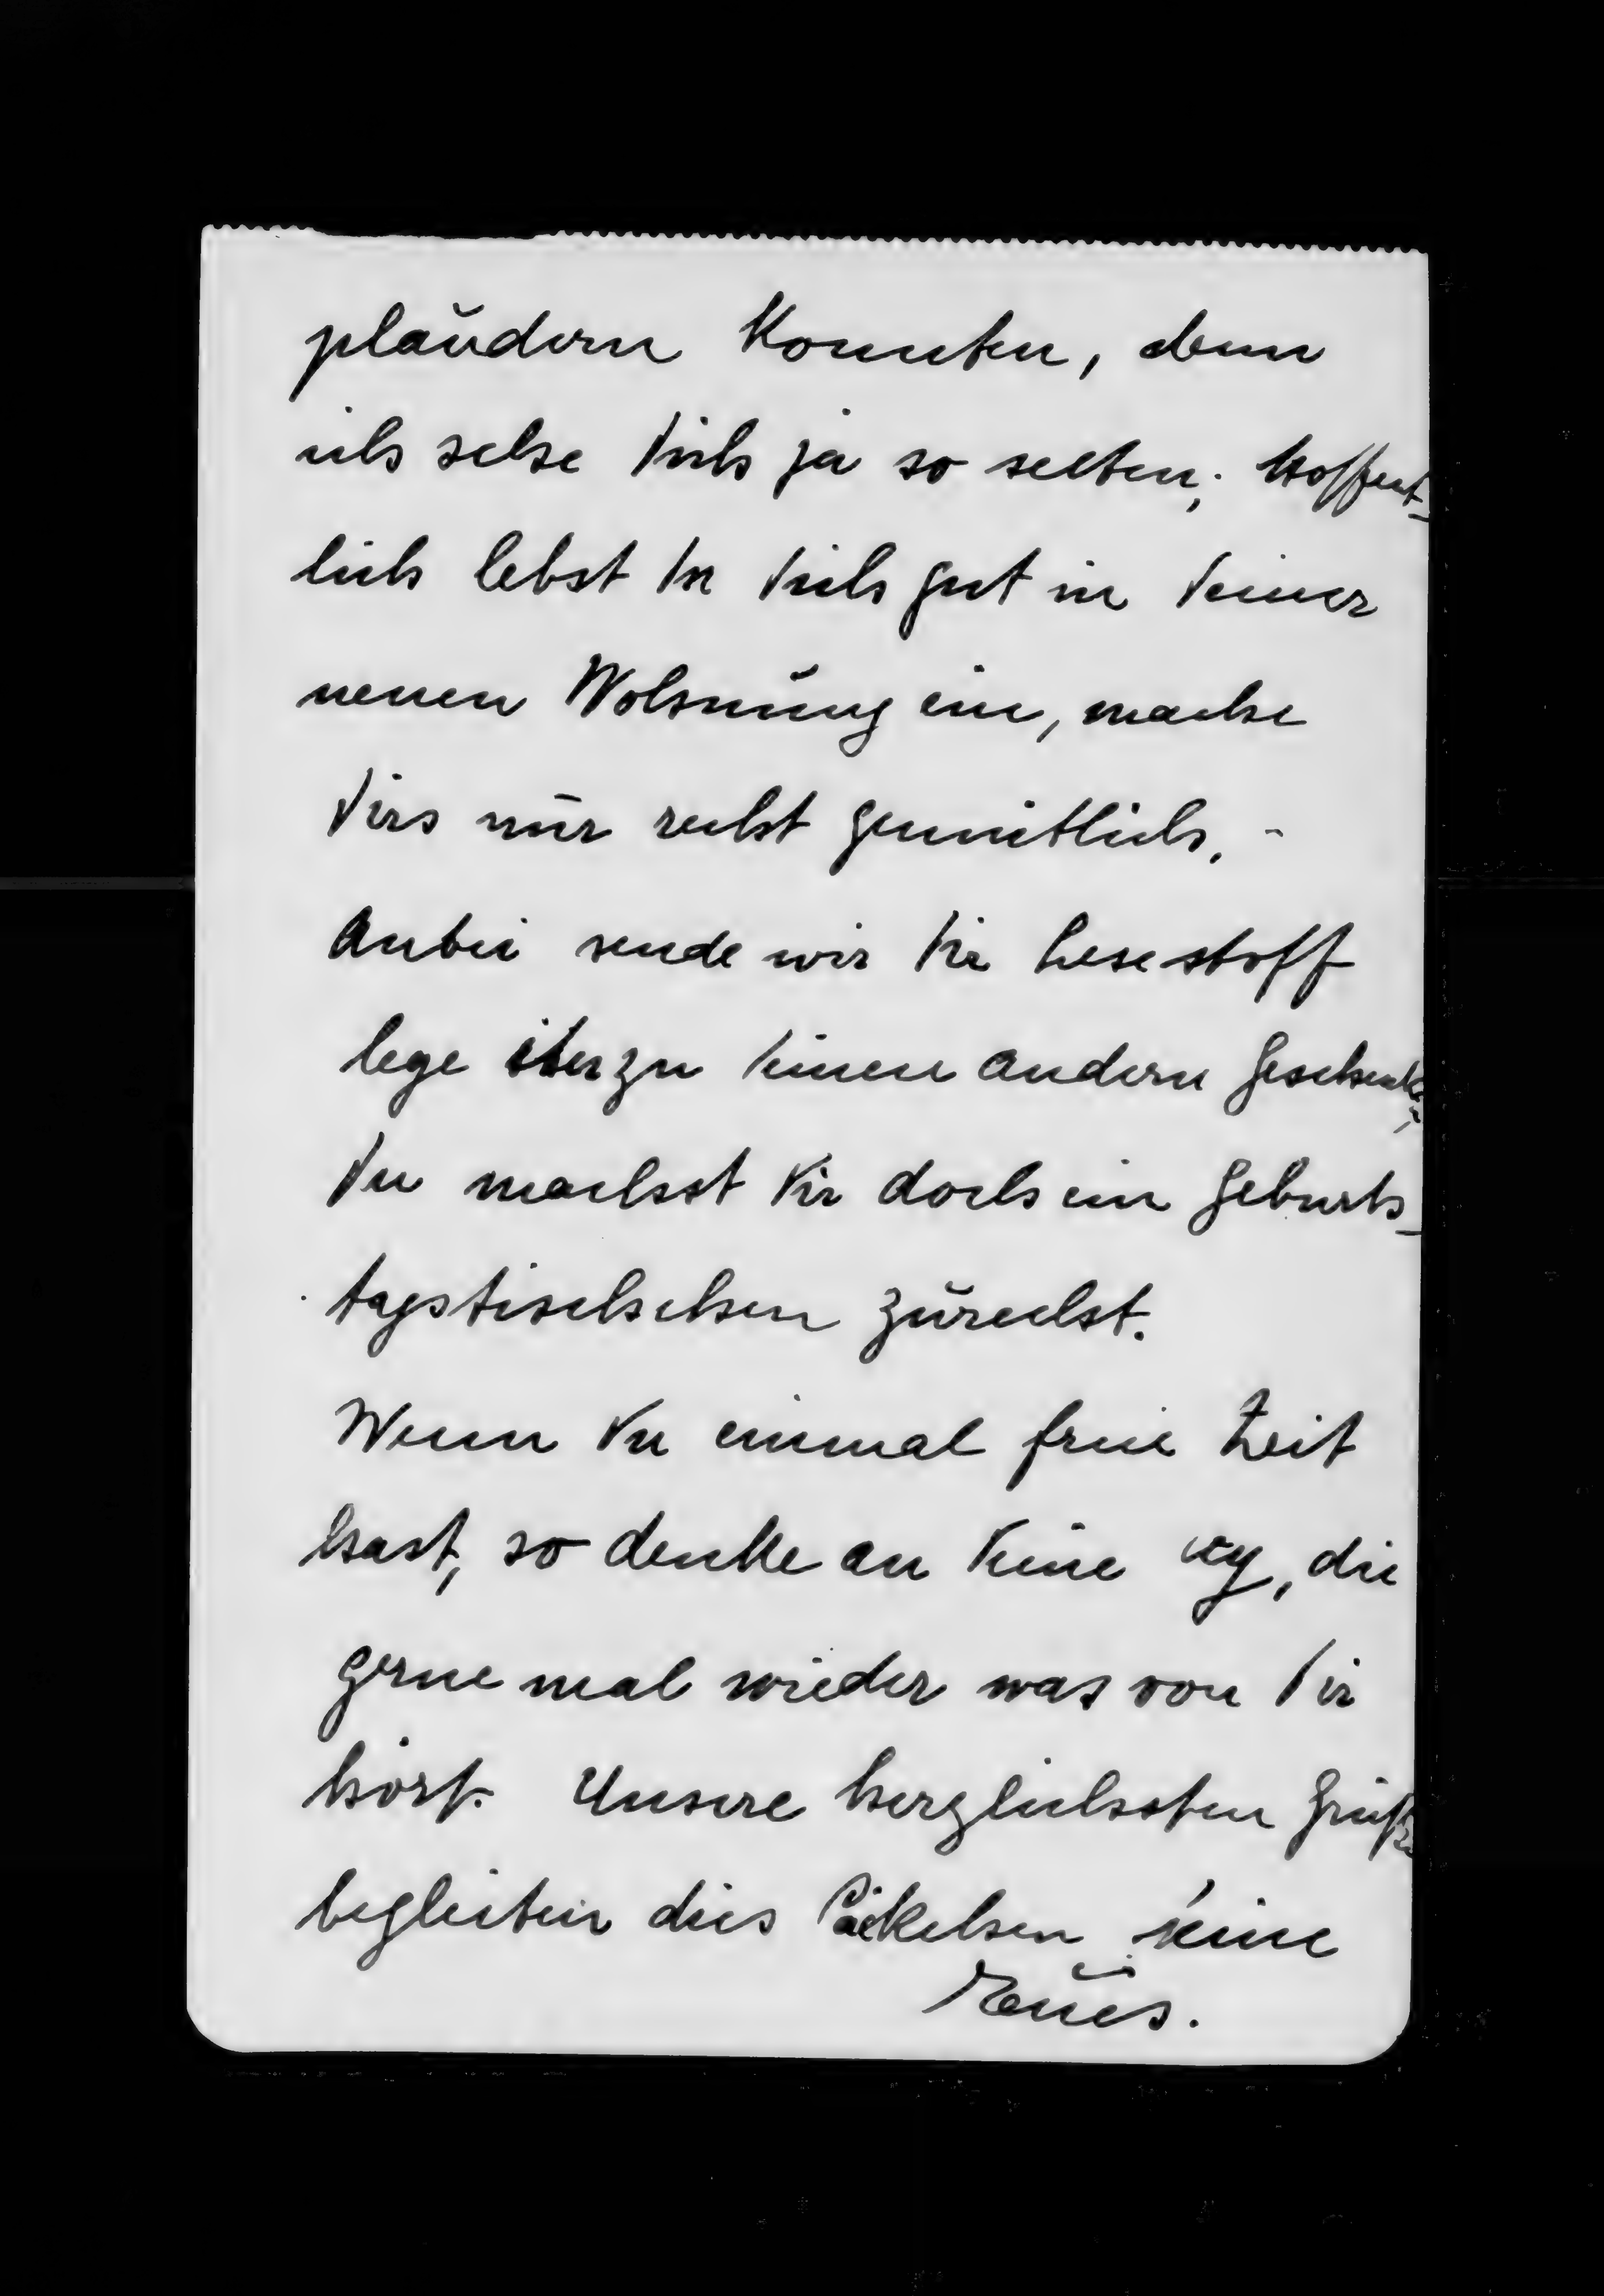 plaudern konnten, denn
ich sehe Dich ja so selten; Hoffent-
lich lebst Du Dich gut in Deiner
neuen Wohnung ein, mache
Dirs nur recht gemütlich. -
Anbei sende wir Dir Lesestoff
lege zu Deinen andern Geschenken,
Du machst Dir doch ein Geburts-
tagstischchen zurecht.
Wenn Du einmal freie Zeit
hast, so denke an Deine, die
gerne mal wieder was von Dir
hört. Unsere herzlichsten Grüße
begleiten dies Päckchen Deine